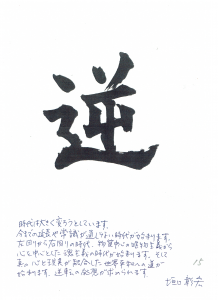 逆
時代は大きく変ろうとしています。
今までの延長や常識が通じない時代が始まります。
左回りから右回りの時代、物質中心の唯物主義から
心を中心とした魂主義の時代が始まります。そして
真の心と現実が融合した世界平和への道が
始まります。逆転の発想が求められます。
15